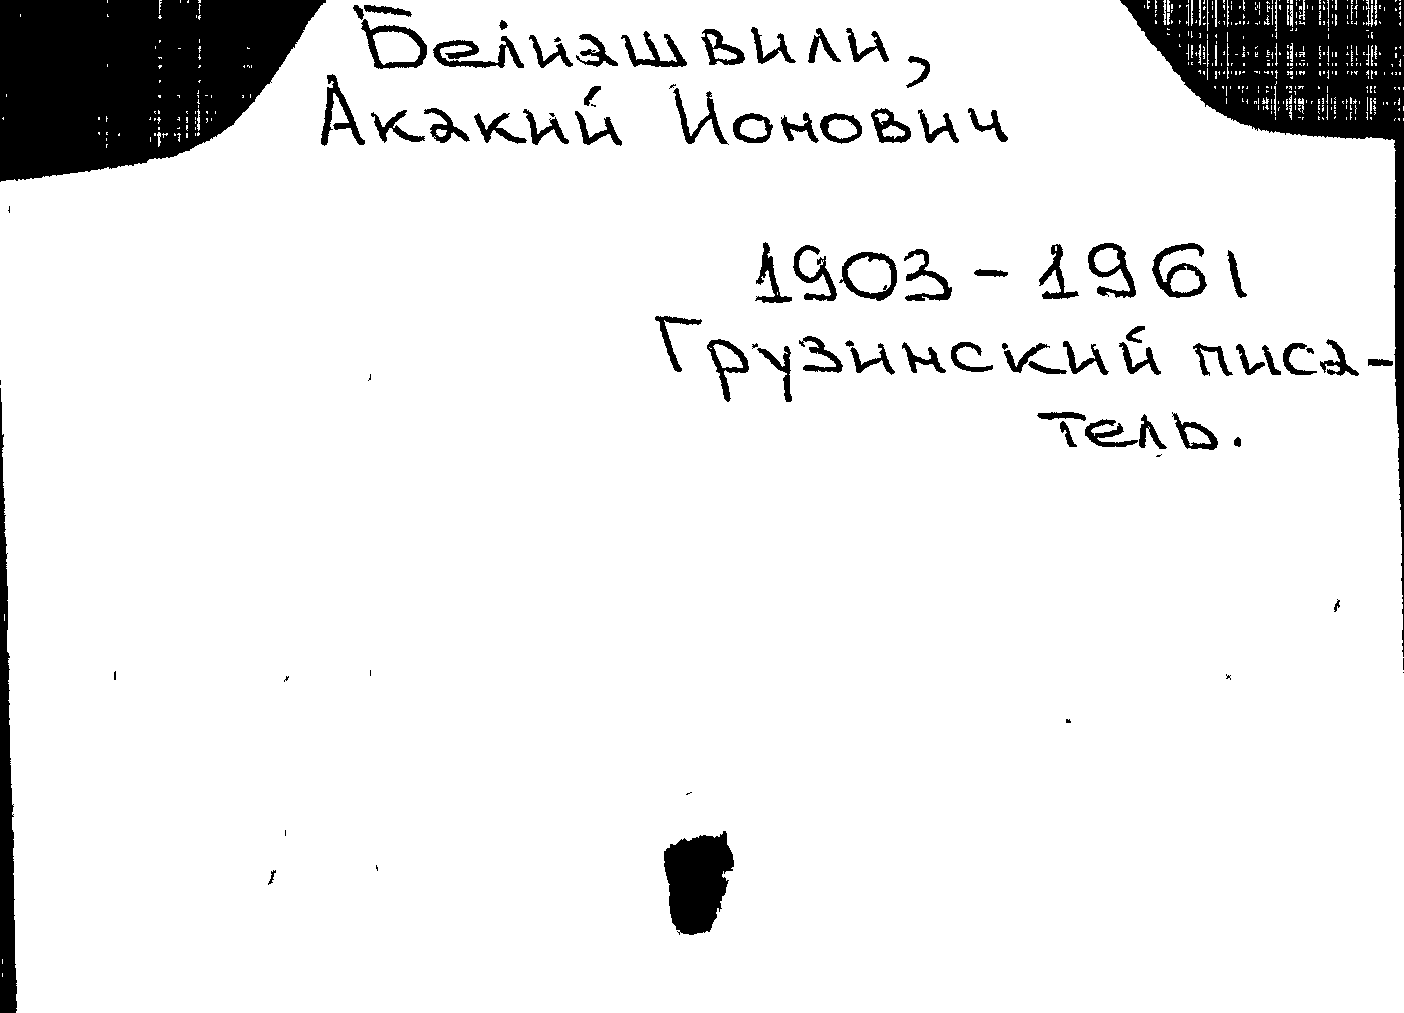 Белиашвили,
Акакий Ионович
1903-1961
Грузинский писа-
тель.